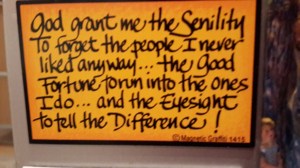 God grant me the Senility
to forget the people I never
liked anyway... the Good
Fortune to run into the ones
I do... and the Eyesight
to tell the Difference!
© Magnetic Graffiti 1415